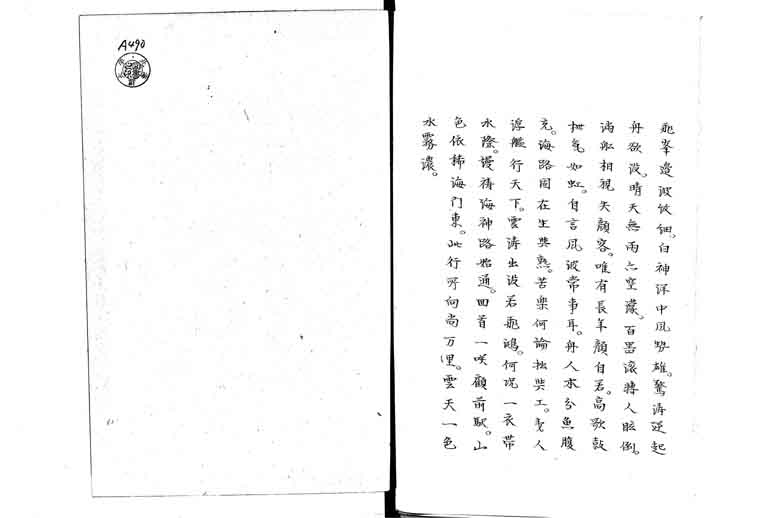 A490
飛峯邉波紋細。白神洋中風勢雄。驚涛逆起
舟欲没。晴天無雨亦空濛。百器滾轉人眩倒。
満舩相視失顔容。唯有長年顔自若。高歌鼓
枻気如虹。自言風波常事耳。舟人本分魚腹
充。海路固在生與熟。苦樂何論拙與工。吾人
浮艦行天下。雲涛出没若飛鴻。何况一衣帯
水際。謾祷海神路始通。回首一咲顧前駅。山
色依稀海门東。此行所向尚万里。雲天一色
水霧濃。